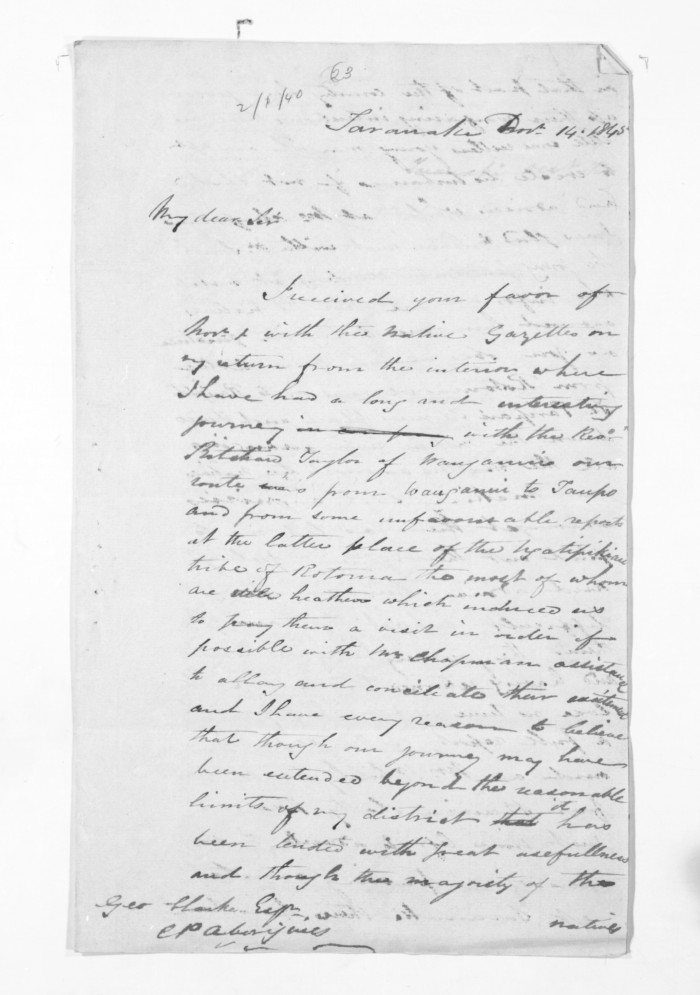 63
2/8/40
Taranaki Novr. 14. 1845
My dear Sir
I received your favor of
Novr. 1 with the Native Gazettes on
my return from the interior where
I have had a long and interesting
journey with the Revd.
Richard Taylor of Wanganui our
route was from Wanganui to Taupo
and from some unfavourable reports
at the latter place of the
tribe of Rotorua the most of whom
are heathens which induced us
to pay them a visit in order if
possible with Mr Chapman assistance
to allay and conciliate their excitement
and I have every reason to believe
that though our journey may have
been extended beyond the reasonable
limits of my district it has
been tended with great usefullness
and though the majority of the
natives
Geo Clarke Esqr.
C P Aborigines